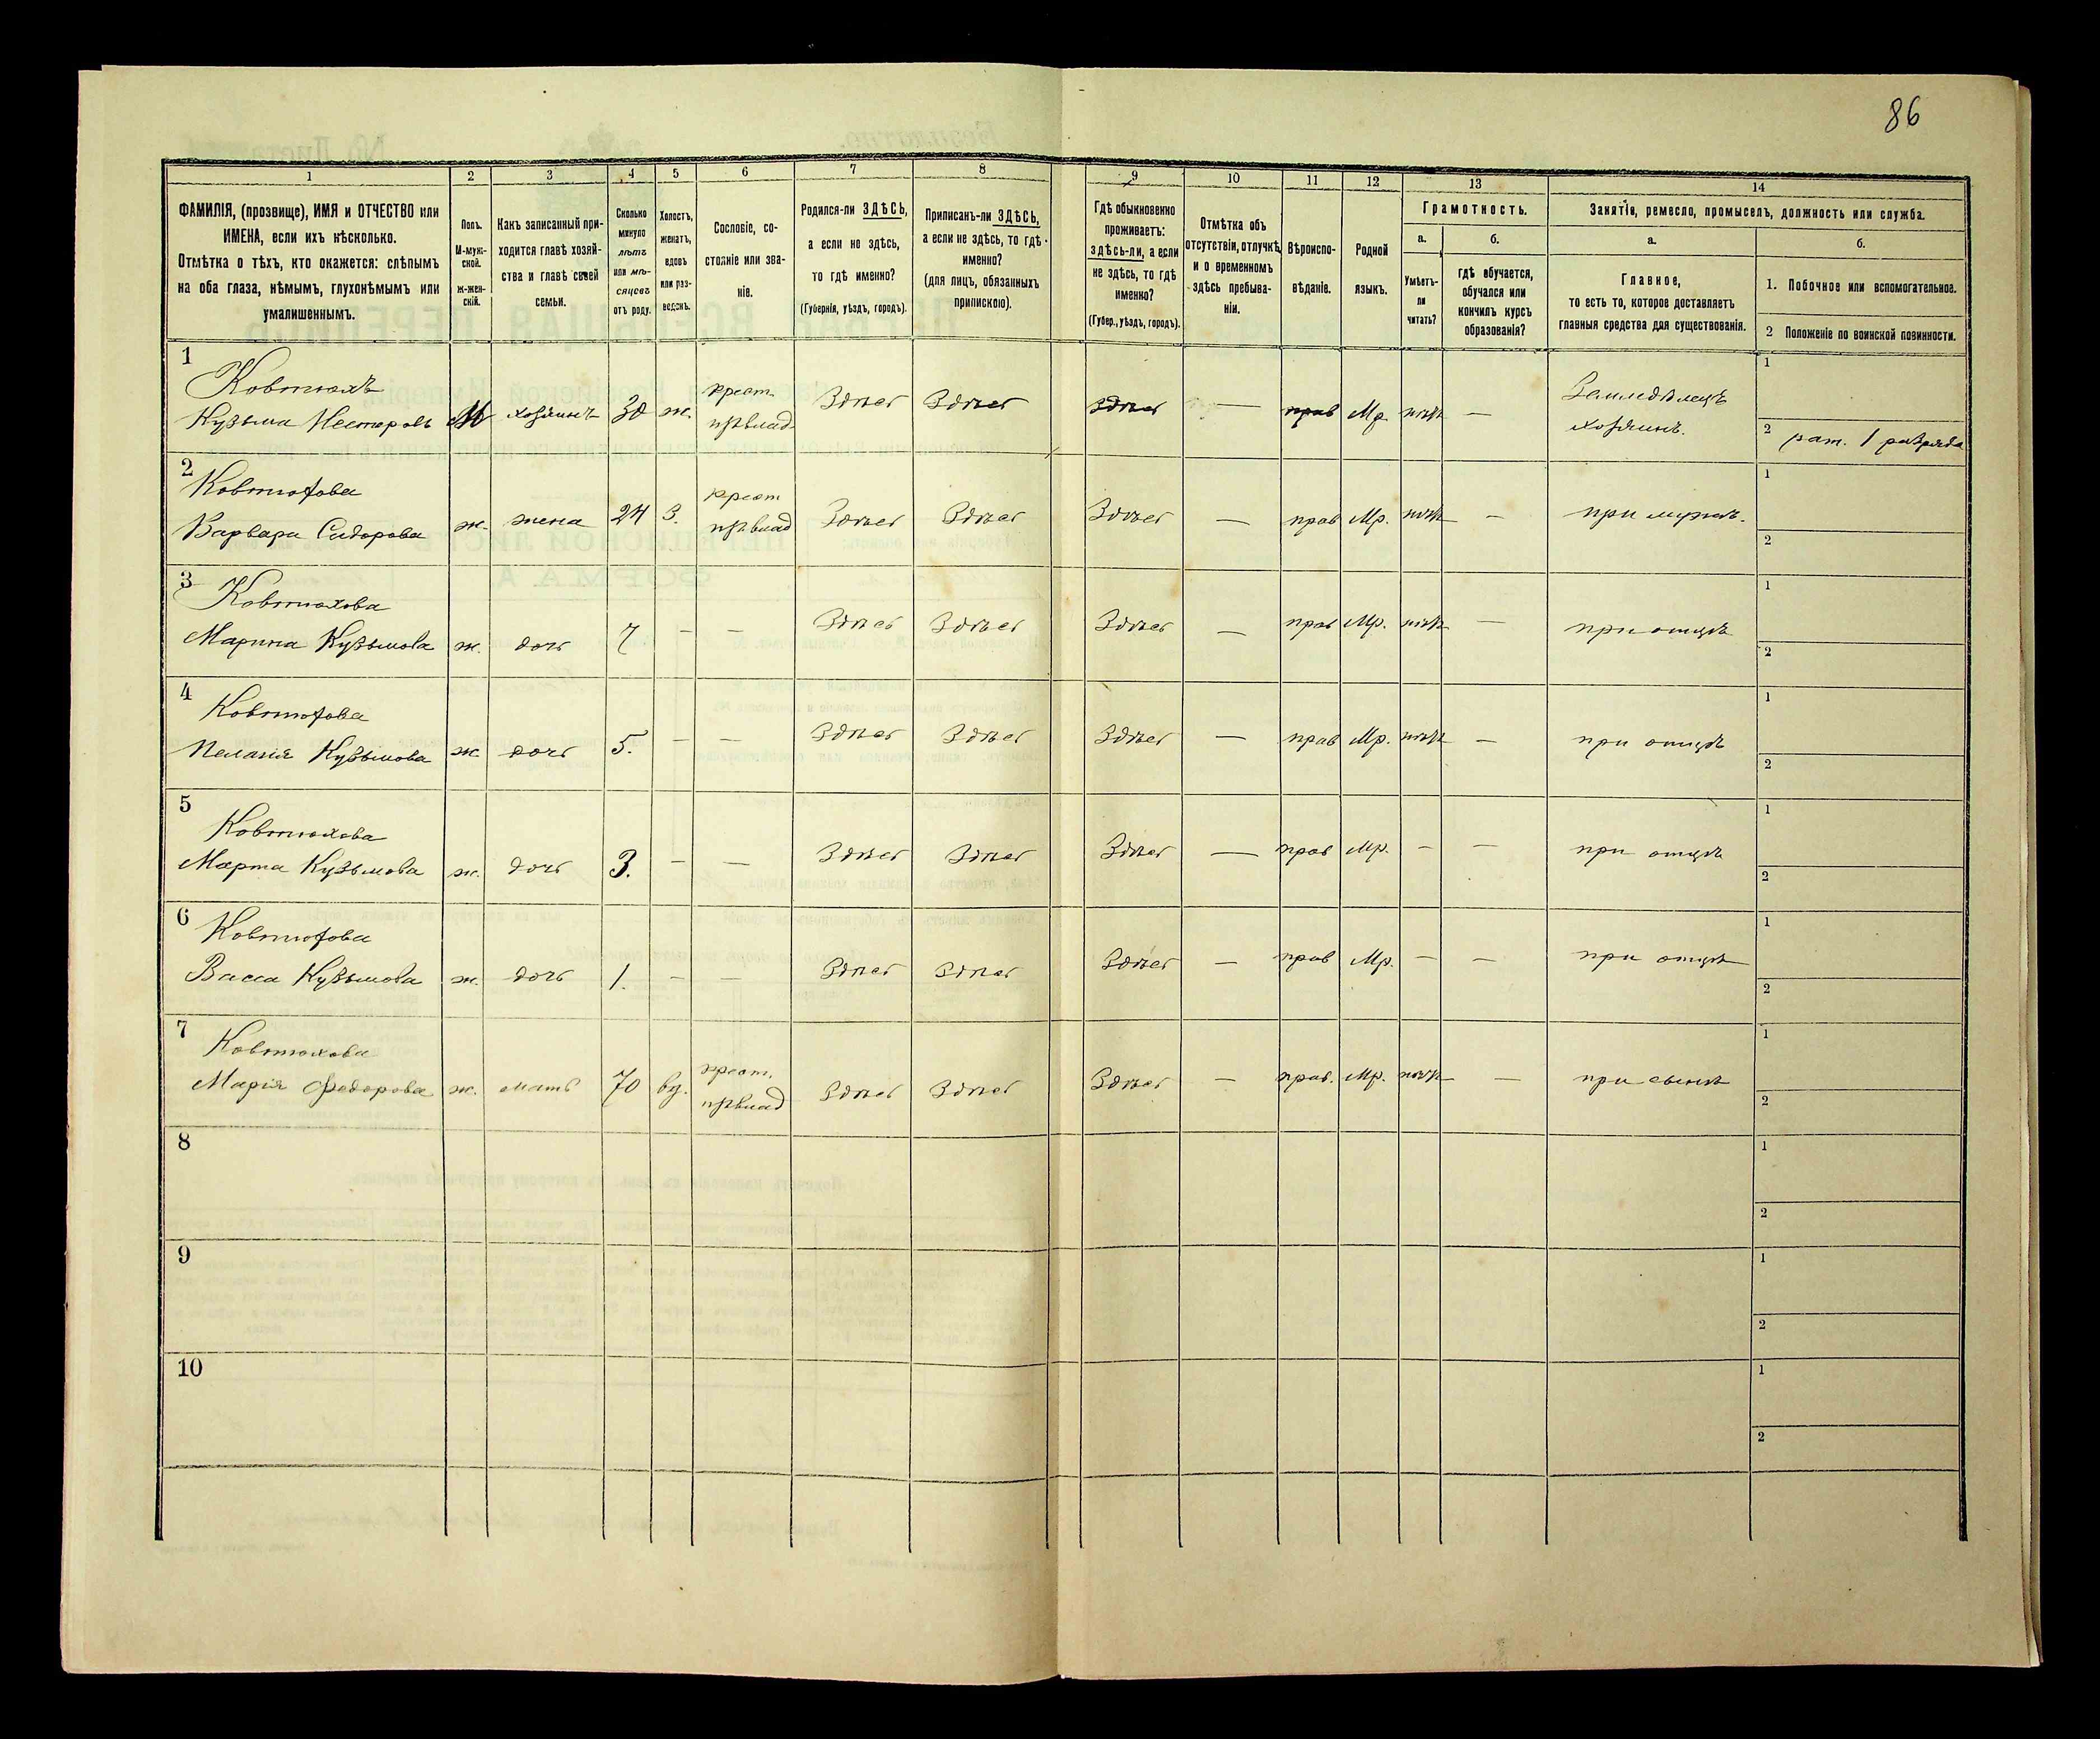 86
1
2
3
4
5
6
7
8
9
10
11
12
13
14
ФАМИЛІЯ, (прозвище), ИМЯ и ОТЧЕСТВО или
ИМЕНА, если ихъ нѣсколько.
Отмѣтка о тѣхъ, кто окажется: слѣпымъ
на оба глаза, нѣмымъ, глухонѣмымъ или
умалишеннымъ.
Полъ.
М-муж-
ской.
ж-жен-
скій.
Какъ записанный при-
ходится главѣ хозяй-
ства и главѣ своей
семьи.
Сколько
минуло
лѣтъ
или мѣ-
сяцевъ
отъ роду.
Холостъ,
женатъ,
вдовъ
или раз-
веденъ.
Сословіе, со-
стояніе или зва-
ніе.
Родился-ли ЗДѢСЬ,
а если не здѣсь,
то гдѣ именно?
(Губернія, уѣздъ, городъ).
Приписанъ-ли ЗДѢСЬ,
а если не здѣсь, то гдѣ
именно?
(для лицъ, обязанныхъ
припискою).
Гдѣ обыкновенно
проживаетъ:
здѣсь-ли, а если
не здѣсь, то гдѣ
именно?
(Губер., уѣздъ, городъ).
Отмѣтка объ
отсутствіи, отлучкѣ
и о временномъ
здѣсь пребыва-
ніи.
Вѣроиспо-
вѣданіе.
Родной
языкъ.
Грамотность.
а.
Умѣетъ-
ли
читать?
б.
гдѣ обучается,
обучался или
кончилъ курсъ
образованія?
Занятіе, ремесло, промыселъ, должность или служба.
а.
Главное,
то есть то, которое доставляетъ
главныя средства для существованія.
б.
1. Побочное или вспомогательное.
2 Положеніе по воинской повинности.
1
Ковтюхъ
Кузьма Нестеровъ М хозяинъ 30 ж. крест. првлад. Здѣсь Здѣсь Здѣсь — прав Мр нѣтъ — Земледѣлецъ хозяинъ.
1
2 рат. 1 разряда
2
Ковтюхова
Варвара Сидорова ж. жена 24 З. крест првлад Здѣсь Здѣсь Здѣсь — прав Мр. нѣтъ — при мужѣ.
1
2
3
Ковтюхова
Марина Кузьмова ж. дочь 7 — — Здѣсь Здѣсь Здѣсь — прав Мр. нѣтъ — при отцѣ
1
2
4
Ковтюхова
Пелагія Кузьмова ж дочь 5. — — Здѣсь Здѣсь Здѣсь — прав Мр. нѣтъ — при отцѣ
1
2
5
Ковтюхова
Марта Кузьмова ж. дочь 3. — — Здѣсь Здѣсь Здѣсь — прав Мр. — — при отцѣ
1
2
6
Ковтюхова
Васса Кузьмова ж. дочь 1. — — Здѣсь Здѣсь Здѣсь — прав Мр. — — при отцѣ
1
2
7
Ковтюхова
Марія Федорова ж. мать 70 вд. крест. првлад Здѣсь Здѣсь Здѣсь — прав. Мр. нѣтъ — при сынѣ
1
2
8
1
2
9
1
2
10
1
2